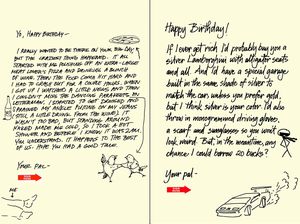 Yo, Happy Birthday–
I really wanted to be there on your big day
but the craziest thing happened. It all
started with me polishing off an extra large
meat lovers pizza and drinking a bunch
of wine. Then the food coma hit hard and
I had to crash out for a couple hours. When
I got up I watched a little news and then
I couldn't
Letterman. I started to get dressed and
realized my ankles
still a little drunk from the wine. It
wasn't too bad, but standing around
naked made me cold, so I took a hot
shower and before I knew it was 2AM.
You understand. It happens to the best
of us. Hope you had a good time.
Your pal–
ME
Happy Birthday!
If I ever get rich I'd probably buy you a
silver Lamborghini with alligator seats
and all. And I'd have a special garage
built in the same shade of silver to
match the car, unless you prefer gold,
but I think silver is your color. I'd also
throw in monogrammed driving gloves,
a scarf and sunglasses so you won't
look weird. But, in the meantime, any
chance I could borrow 20 bucks?
Your pal–